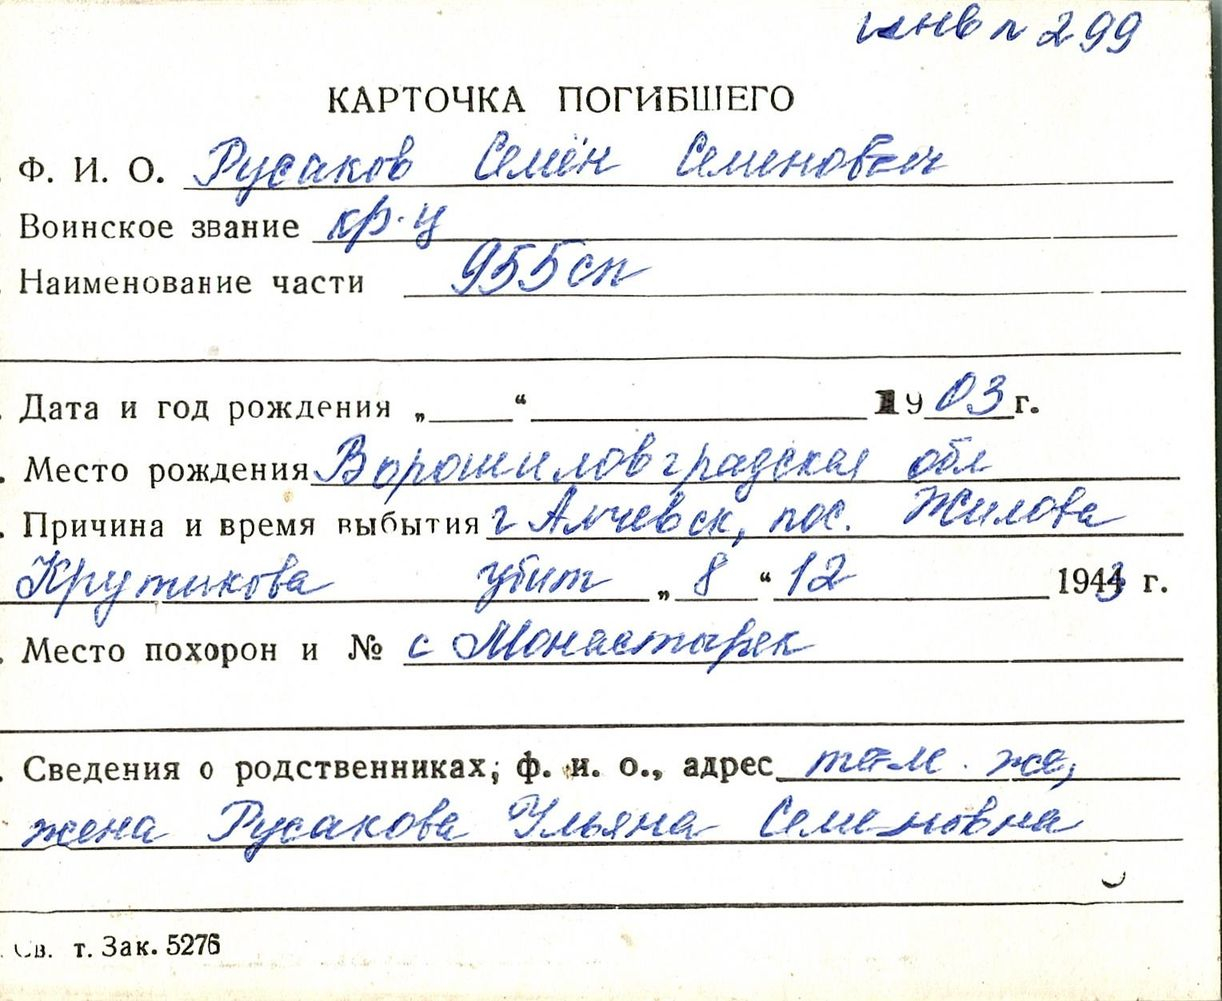 инв n 299
КАРТОЧКА ПОГИБШЕГО
Ф. И. О. Русаков Семён Семенович
Воинское звание кр-ц
Наименование части 955сп
Дата и год рождения „ “ 1903 г.
Место рождения Ворошиловградская обл
Причина и время выбытия г Алчевск, пос. Жилова
Крутикова убит „ 8 “ 12 1943 г.
Место похорон и № с Монастырек
Сведения о родственниках, ф. и. о., адрес там же,
жена Русакова Ульяна Семеновна
Св. т. Зак. 5276